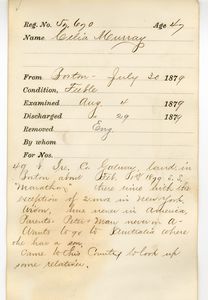 Reg. No. 59,690 Age 47
Name Celia Murray
From Boston - July 30 1879
Condition, Feeble
Examined Aug. 4 1879
Discharged " 29 1879
Removed Eng
By whom
For Nos.
49 Ire, Co Galway, land. in
Boston about Feb. 1879 S.S.
"Marathon" Here since with the
exception of 2 mos in New York.
Widow, Hus never in America.
Parents Peter & Mary never in A-
Wants to go to Australia where
she has a son.
Came to this Country to look up
some relatives.